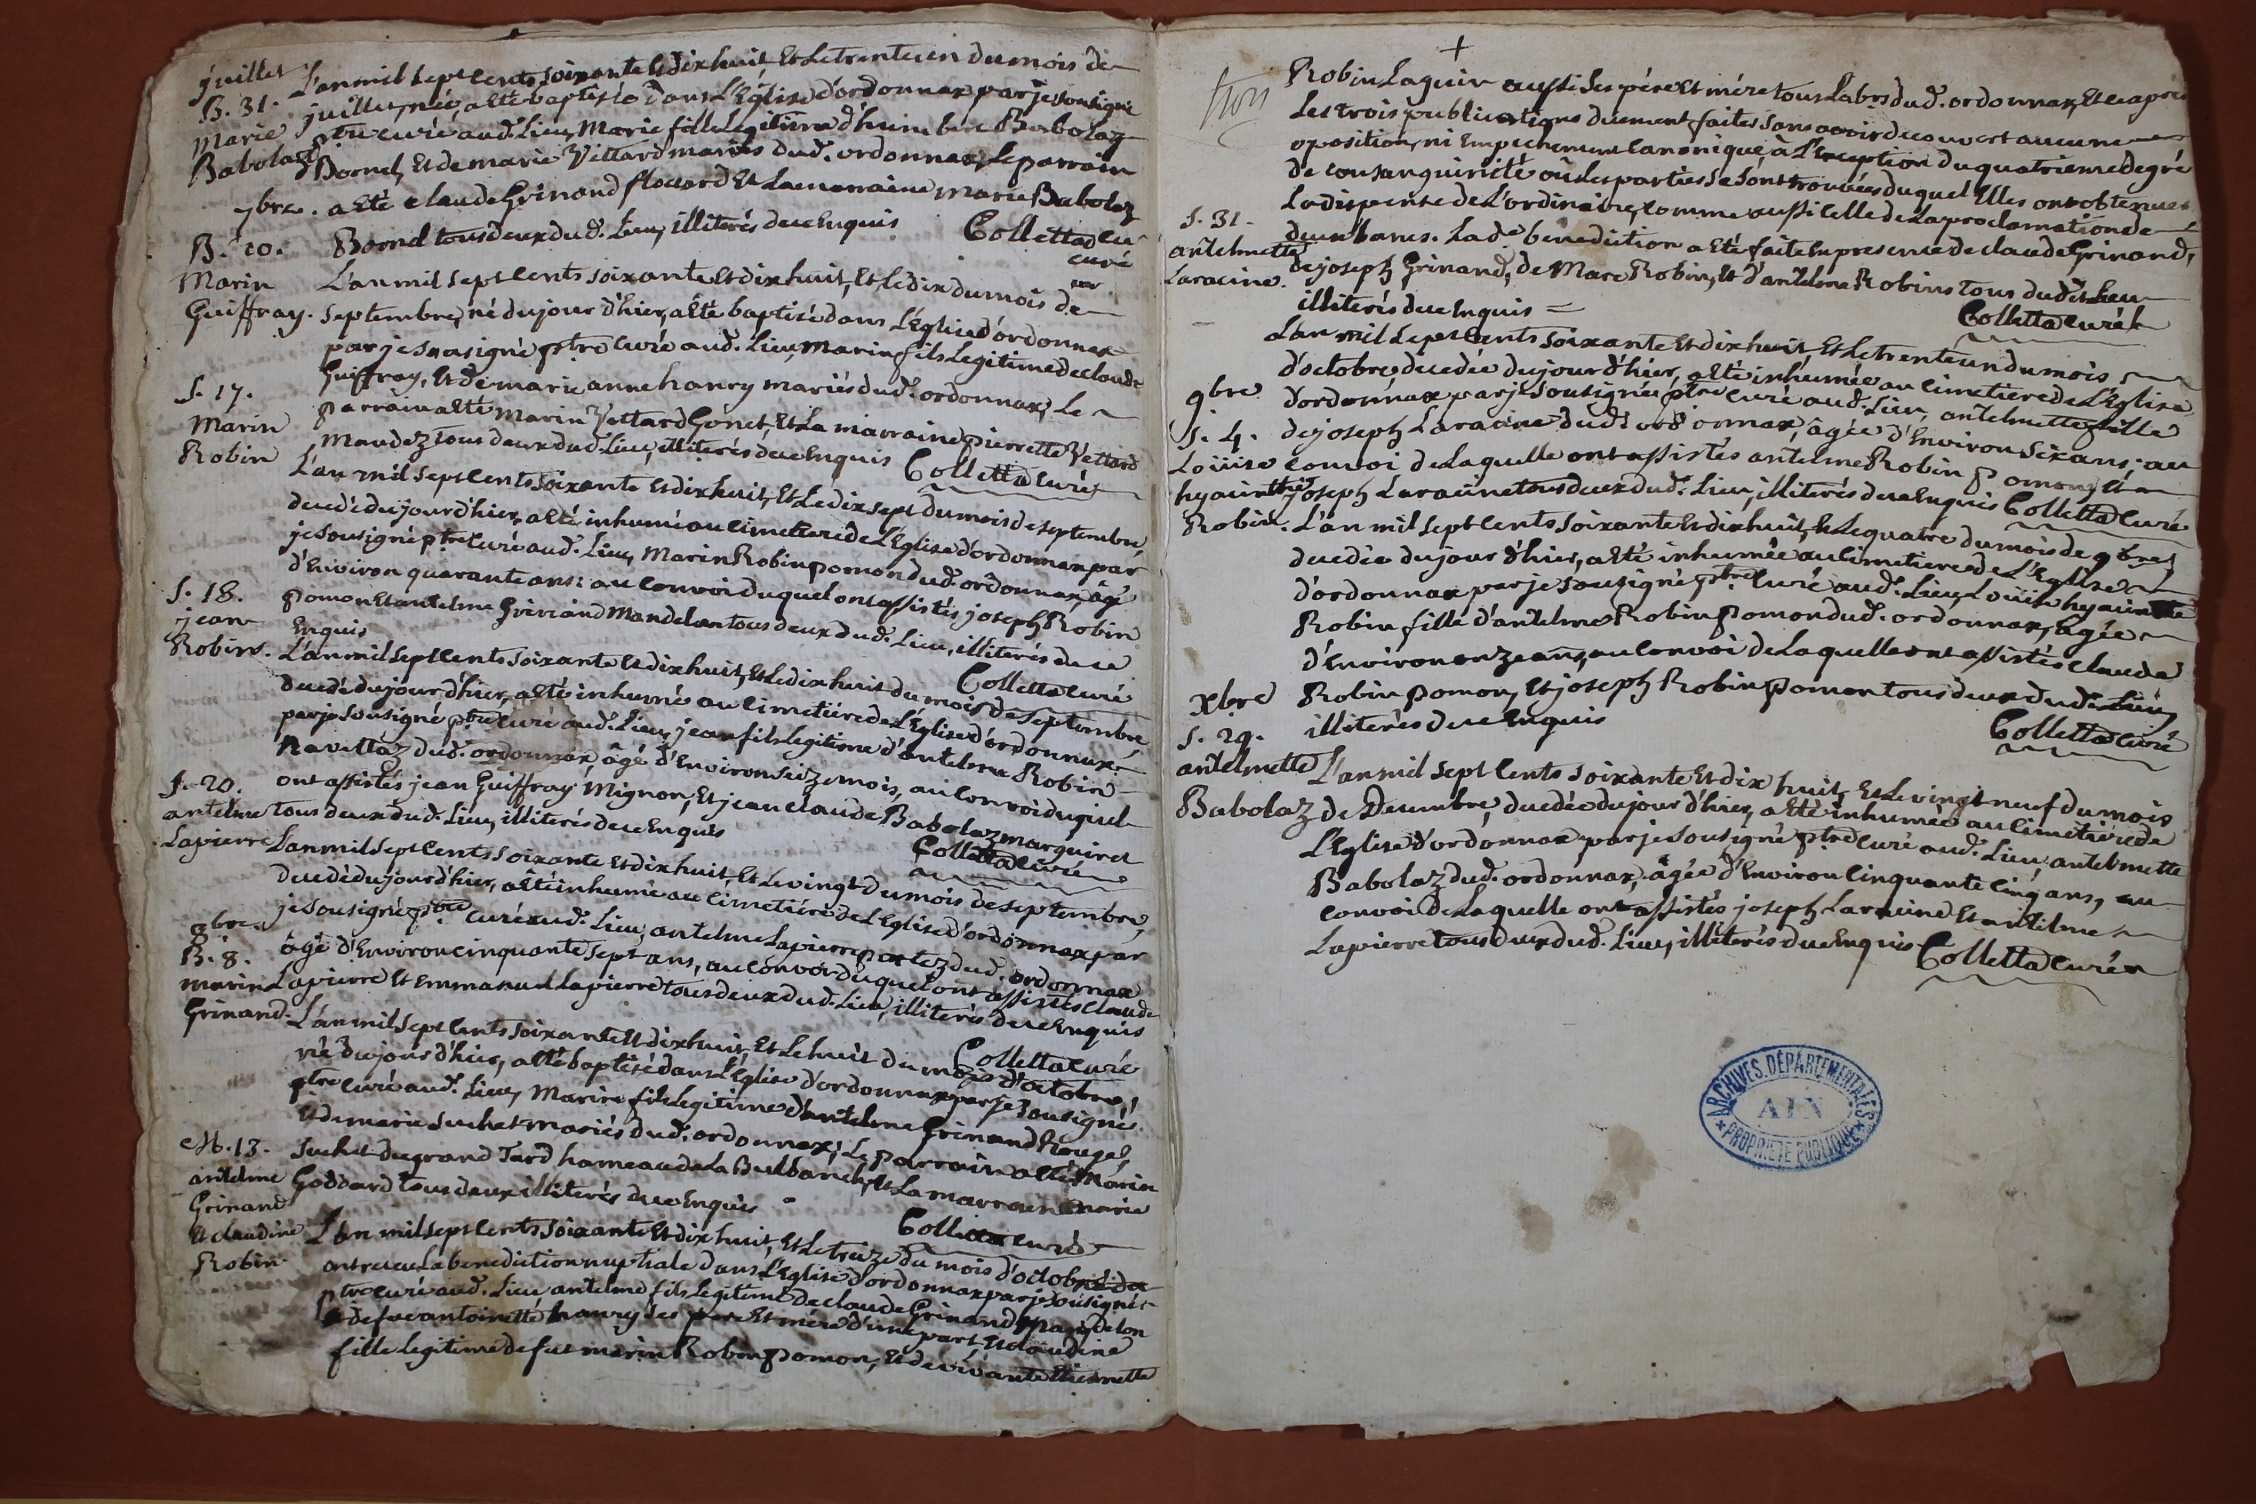 juillet
B. 31.
Marie
Babolaz
L'an mil sept cents soixante et dix huit et le trente un du mois de
juillet, née, a été baptisée dans l'Eglise d'ordonnax par je sousigné
ptre curé aud. lieu, Marie fille legitime d'humbert Babolaz
Bornel, et de marie Vittard mariés dud. ordonnax, le parrain
a été claude Grinand flocard et la marraine marie Babolaz
Bornel tous deux dud. lieu, illiterés de ce enquis Colletta cu-
curé
7bre.
B. 10.
Marin
Guiffray.
L'an mil sept cents soixante et dix huit, et le dix du mois de
septembre, né du jour d'hier, a été baptisé dans l'Eglise d'ordonnax
par je sousigné ptre curé aud. lieu, marin fils legitime de claude
Guiffray, et de marie anne hanry mariés dud. ordonnax, le
parrain a été marin Vettard Gonet, et la marraine pierrette Vettard
Maudez tous deux dud. lieu, illiterés de ce enquis Colletta curé
S. 17.
Marin
Robin
L'an mil sept cents soixante et dix huit, et le dix sept du mois de septembre,
decedé du jour d'hier, a été inhumé au cimetiere de l'Eglise d'ordonnax par
je sousigné ptre curé aud. lieu, Marin Robin pomon dud. ordonnax, âgé
d'environ quarante ans: au convoi duquel ont assistés joseph Robin
pomon et antelme Grinand Mandelon tous deux dud. lieu, illiterés de ce
enquis Colletta curé
S. 18.
jean
Robin.
L'an mil sept cents soixante et dix huit, et le dix huit du mois de septembre,
decedé du jour d'hier, a été inhumé au cimetiere de l'Eglise d'ordonnax
par je sousigné ptre curé aud. lieu, jean fils legitime d'antelme Robin
Navettaz dud. ordonnax, âgé d'environ seize mois, au convoi duquel
ont assistés jean Guiffray Mignon, et jean claude Babolaz marquiret
tous deux dud. lieu, illiterés de ce enquis Colletta curé
S. 20.
antelme
Lapierre
L'an mil sept cents soixante et dix huit, et le vingt du mois de septembre,
decedé du jour d'hier, a été inhumé au cimetiére de l'Eglise d'ordonnax par
je sousigné ptre curé aud. lieu, antelme Lapierre dud. ordonnax
âgé d'environ cinquante sept ans, au convoi duquel ont assistés claude
Lapierre et emmanuel Lapierre tous deux dud. lieu, illiterés de ce enquis
Colletta curé
8bre.
B. 8.
marin
Grinand.
L'an mil sept cents soixante et dix huit, et le huit du mois d'octobre,
né du jour d'hier, a été baptisé dans l'Eglise d'ordonnax par je sousigné
ptre curé aud. lieu, Marin fils legitime d'antelme Grinand Rouget,
et de marie suchet mariés dud. ordonnax; le parrain a été Marin
suchet du grand Tard hameau de la Burbanche, et la marraine marie
Goddard tous deux illiterés de ce enquis
Colletta curé
M. 13.
antelme
Grinand
et claudine
Robin
L'an mil sept cents soixante et dix huit, et le treize du mois d'octobre
ont reçeu la benediction nuptiale dans l'Eglise d'ordonnax par je sousigné
ptre curé aud. lieu, antelme fils legitime de claude Grinand Mandelon
et de feue antoinette hanry ses pere et mére d'une part, et claudine
fille legitime de feu marin Robin pomon, et de vivante thiennette
+
trois
Robin Laquir aussi ses pére et mére tous labrs dud. ordonnax, et ce aprés
les trois publications duement faites sans avoir decouvert aucune
oposition, ni empechement canonique, à l'exception du quatrieme degré
de consanguinité où les parties se sont trouvées duquel elles ont obtenues
la dispense de l'ordinaire, comme aussi celle de la proclamation de
deux bans. Lad. benediction a été faite en presence de claude Grinand,
de joseph Grinand, de Marc Robin, et d'antelme Robin tous dudit lieu
illiterés de ce enquis = Colletta curé
S. 31.
antelmette
Laracine.
L'an mil sept cents soixante et dix huit, et le trente un du mois
d'octobre, decedée du jour d'hier, a été inhumée au cimetiere de l'Eglise
d'ordonnax par je sousigné ptre curé aud. lieu, antelmette fille
de joseph Laracine dud. ordonnax, âgée d'environ six ans; au
convoi de laquelle ont assistés antelme Robin pomon, et
joseph Laracine tous deux dud. lieu, illiterés de ce enquis Colletta curé
9bre
S. 4.
Loüise
hyacinthe
Robin.
L'an mil sept cents soixante et dix huit, et le quatre du mois de 9bre,
decedée du jour d'hier, a été inhumée au cimetiere de l'Eglise
d'ordonnax par je sousigné ptre curé aud. lieu, Loüise hyacinthe
Robin fille d'antelme Robin pomon dud. ordonnax, agée
d'environ onze ans, au convoi de laquelle ont assistés claude
Robin pomon, et joseph Robin pomon tous deux dud. lieu,
illiterés de ce enquis Colletta curé
Xbre
S. 29.
antelmette
Babolaz
L'an mil sept cents soixante et dix huit, et le vingt neuf du mois
de Decembre, decedée du jour d'hier, a été inhumée au cimetiére de
l'Eglise d'ordonnax par je sousigné ptre curé aud. lieu, antelmette
Babolaz dud. ordonnax, âgée d'environ cinquante cinq ans, au
convoi de laquelle ont assistés joseph Laracine et antelme
Lapierre tous deux dud. lieu, illiterés de ce enquis Colletta curé
ARCHIVES DÉPARTEMENTALES
AIN
PROPRIÉTÉ PUBLIQUE